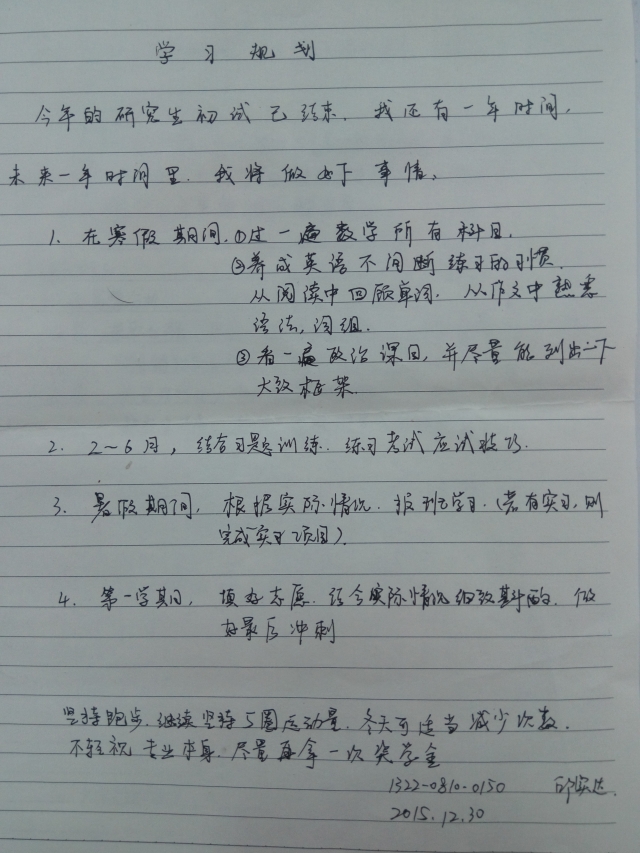 学习规划
今年的研究生初试已结束.我还有一年时间,
未来一年时间里.我将做如下事情:
1. 在寒假期间.①过一遍数学所有科目.
②养成英语不间断练习的习惯.
从阅读中回顾单词.从作文中熟悉
语法,词组.
③看一遍政治课目,并尽量能列出一下
大致框架.
2. 2~6月,结合习题训练.练习考试应试技巧.
3. 暑假期间,根据实际情况.报班学习.(若有实习,则
完成实习项目).
4. 第一学期,填好志愿.结合实际情况细致斟酌.做
好最后冲刺
坚持跑步.继续坚持5圈运动量.冬天可适当减少次数.
不轻视专业本身.尽量再拿一次奖学金
1322-0810-0150
2015.12.30